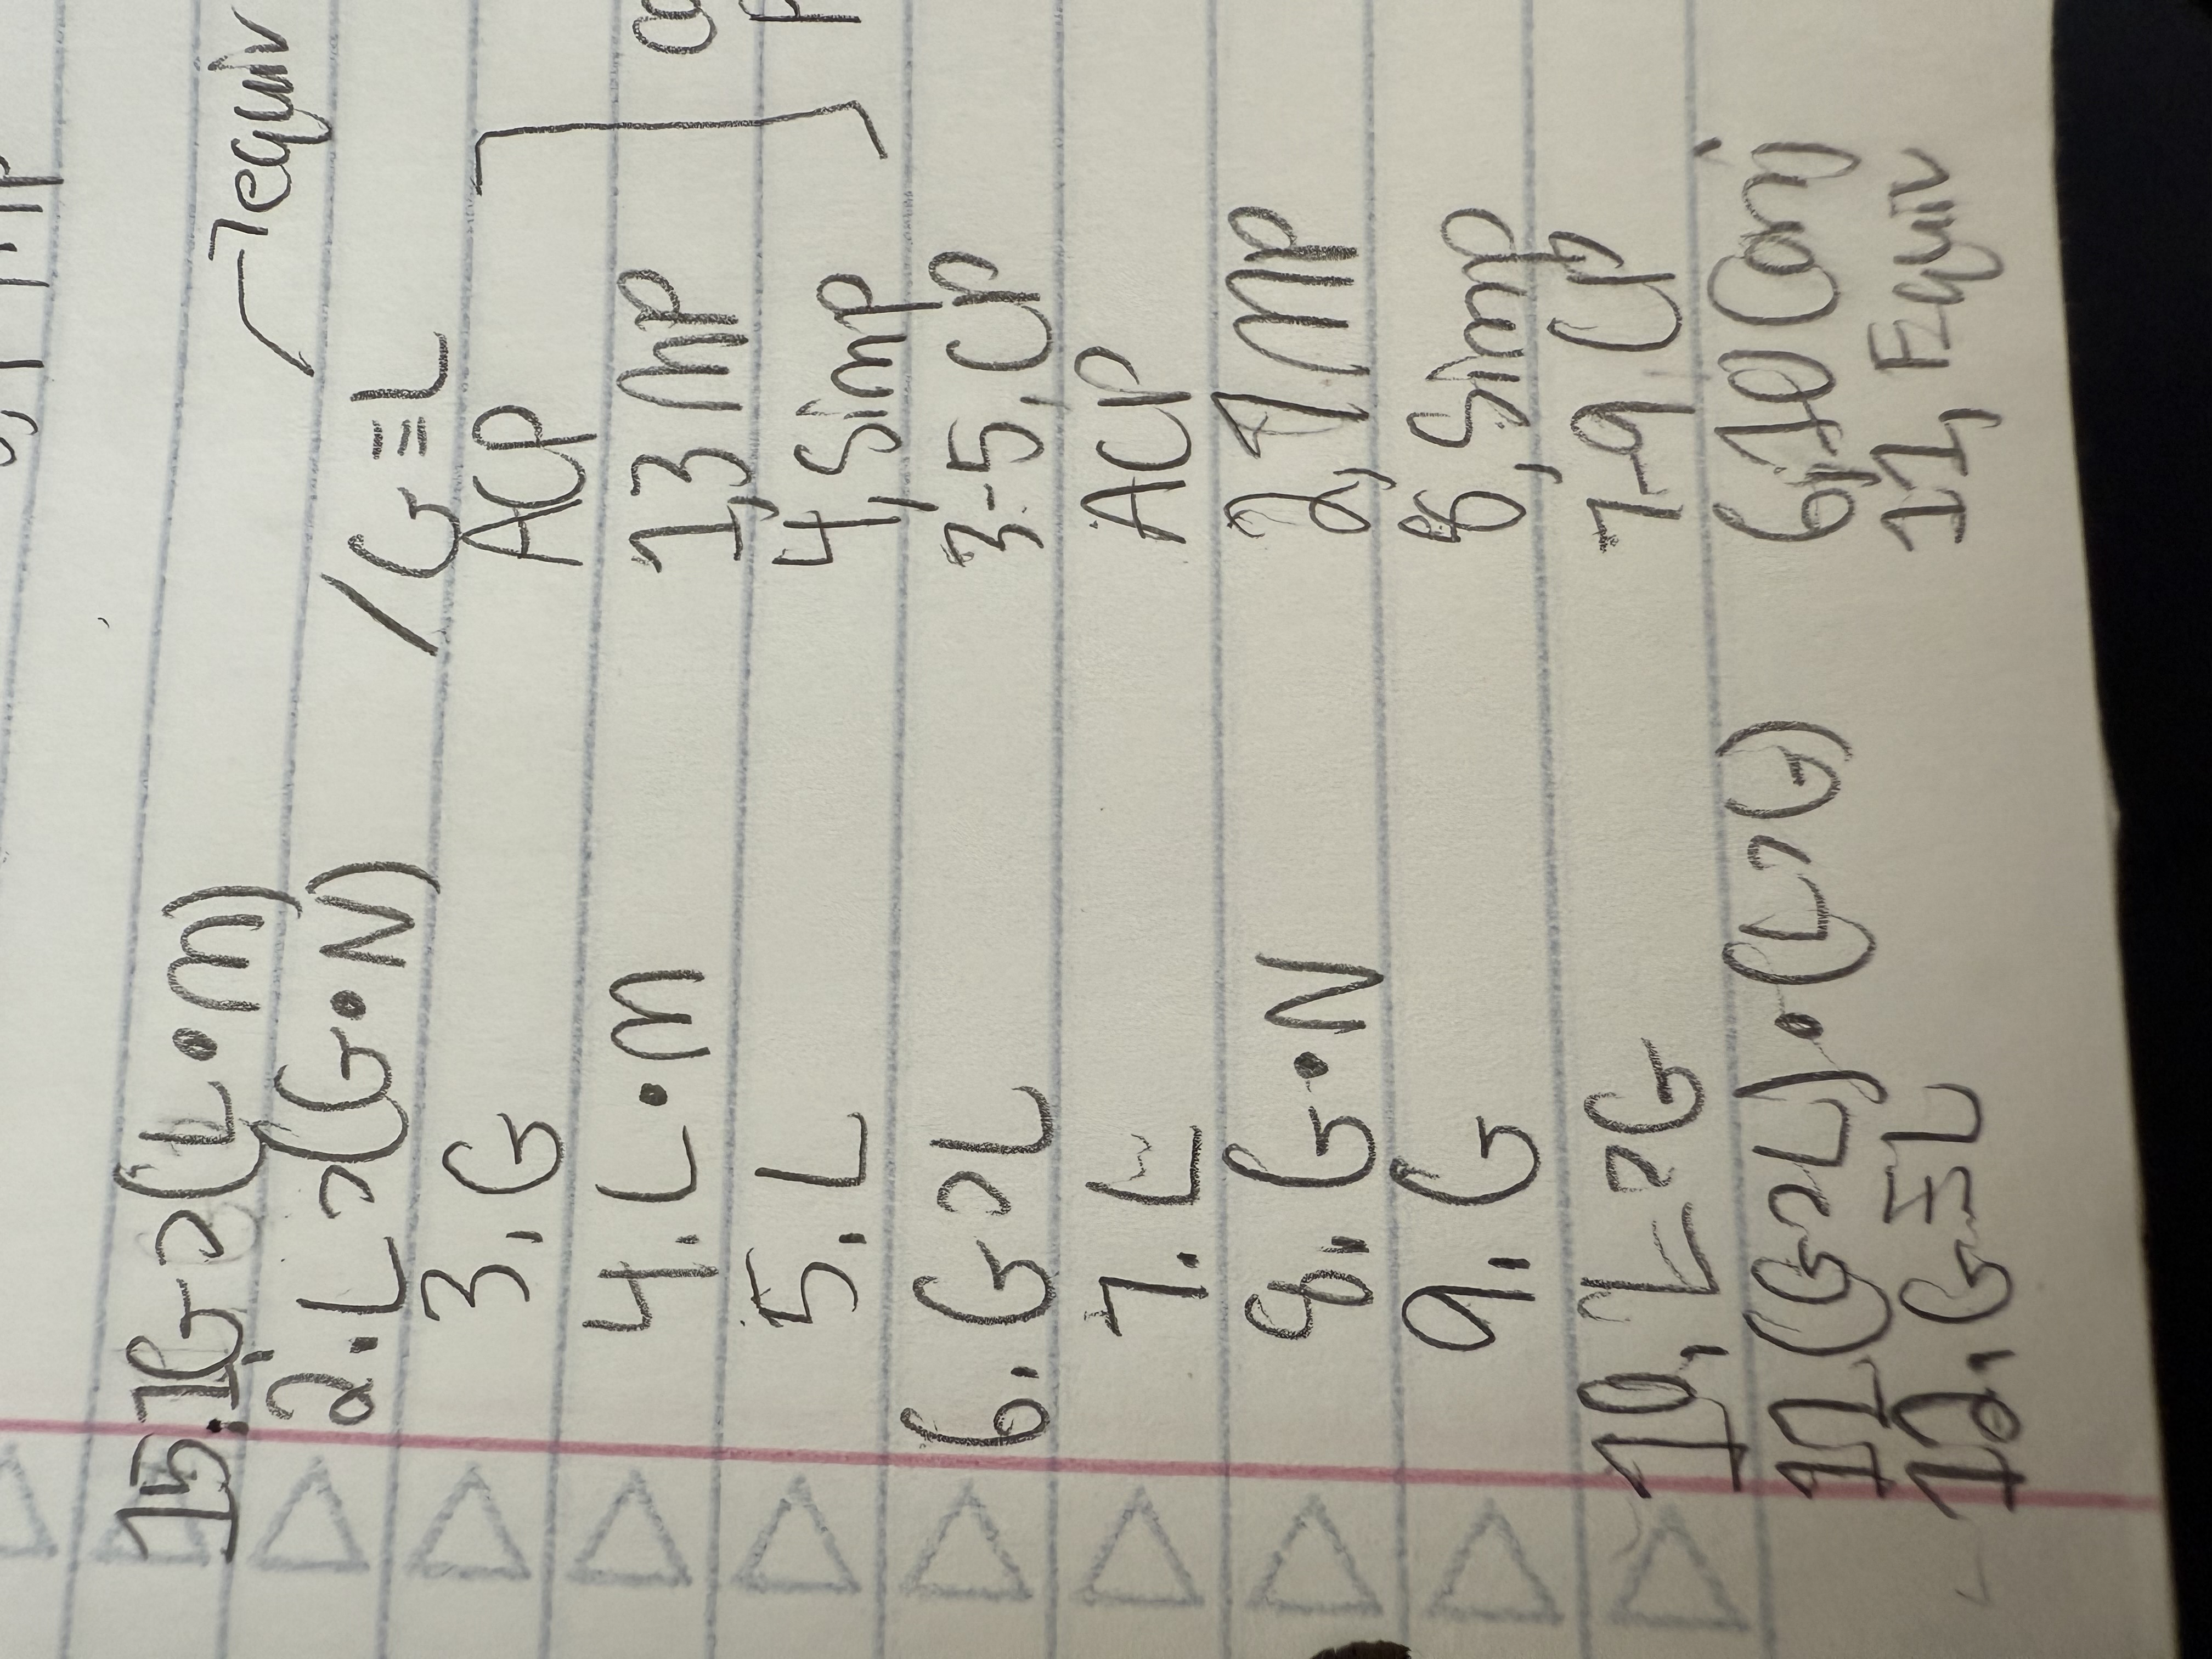 equiv
15. 1. G⊃(L•M)
2. L⊃(G•N) /G≡L
3. G ACP
4. L•M 1,3 MP
5. L 4, Simp
6. G⊃L 3-5, CP
7. L ACP
8. G•N 2,7 MP
9. G 8, Simp
10. L⊃G 7-9 CP
11 (G⊃L)•(L⊃G) 6,10 Conj
12. G≡L 11, Equiv